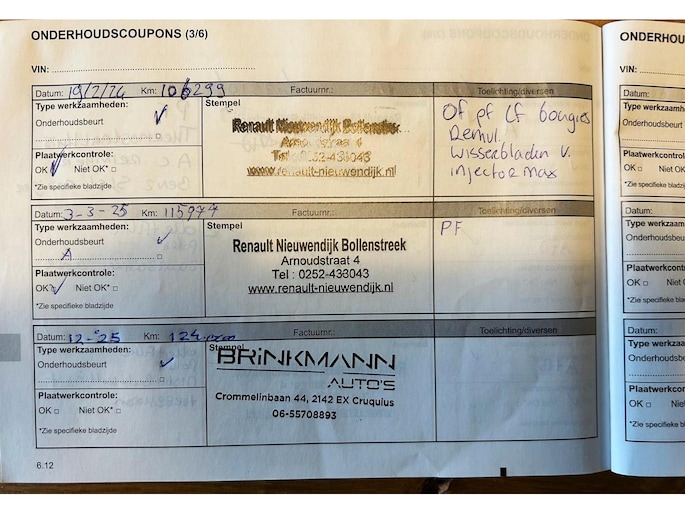 ONDERHOUDSCOUPONS (3/6)
VIN:
Datum: 19/2/24 Km: 106299 Factuurnr.: Toelichting/diversen
Type werkzaamheden:
Onderhoudsbeurt
Stempel
Renault Nieuwendijk Bollenstreek
Arnoudstraat 4
Tel : 0252-433043
www.renault-nieuwendijk.nl
Of pf Lf bougies
Remvl.
Wisserbladen v.
injector max
Plaatwerkcontrole:
OK Niet OK*
*Zie specifieke bladzijde
Datum: 3-3-25 Km: 115977 Factuurnr.: Toelichting/diversen
Type werkzaamheden:
Onderhoudsbeurt
A
Stempel
Renault Nieuwendijk Bollenstreek
Arnoudstraat 4
Tel : 0252-433043
www.renault-nieuwendijk.nl
PF
Plaatwerkcontrole:
OK Niet OK*
*Zie specifieke bladzijde
Datum: 12-'25 Km: 124. Factuurnr.: Toelichting/diversen
Type werkzaamheden:
Onderhoudsbeurt
Stempel
BRINKMANN
AUTO'S
Crommelinbaan 44, 2142 EX Cruquius
06-55708893
Plaatwerkcontrole:
OK Niet OK*
*Zie specifieke bladzijde
6.12
ONDERHOU
VIN:
Datum:
Type werkzaamh
Onderhoudsbeurt
Plaatwerkcontrol
OK Niet OK
*Zie specifieke bladz
Datum:
Type werkzaam
Onderhoudsbeu
Plaatwerkcontro
OK Niet O
*Zie specifieke bla
Datum:
Type werkzaa
Onderhoudsbe
Plaatwerkcon
OK Niet
*Zie specifieke b